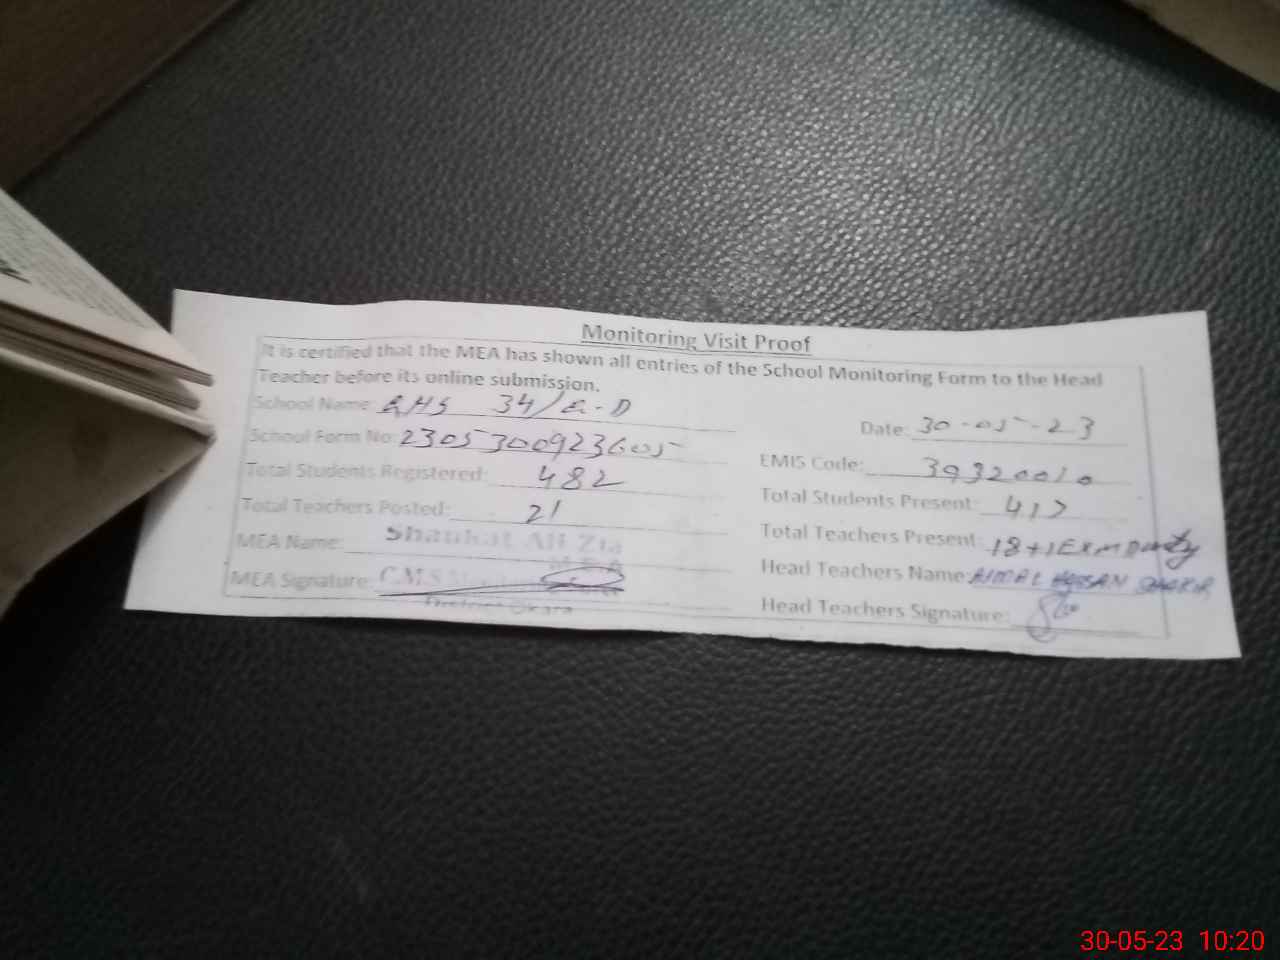 Monitoring Visit Proof
It is certified that the MEA has shown all entries of the School Monitoring Form to the Head
Teacher before its online submission.
School Name: GHS 34/G-D
Date: 30-05-23
School Form No: 2305300923605
EMIS Code: 39320010
Total Students Registered: 482
Total Students Present: 417
Total Teachers Posted: 21
Total Teachers Present: 18+1 Exm Duty
MEA Name: Shaukat Ali Zia
Head Teachers Name: SHAKIR
MEA Signature: CMS
District Okara
Head Teachers Signature:
30-05-23 10:20